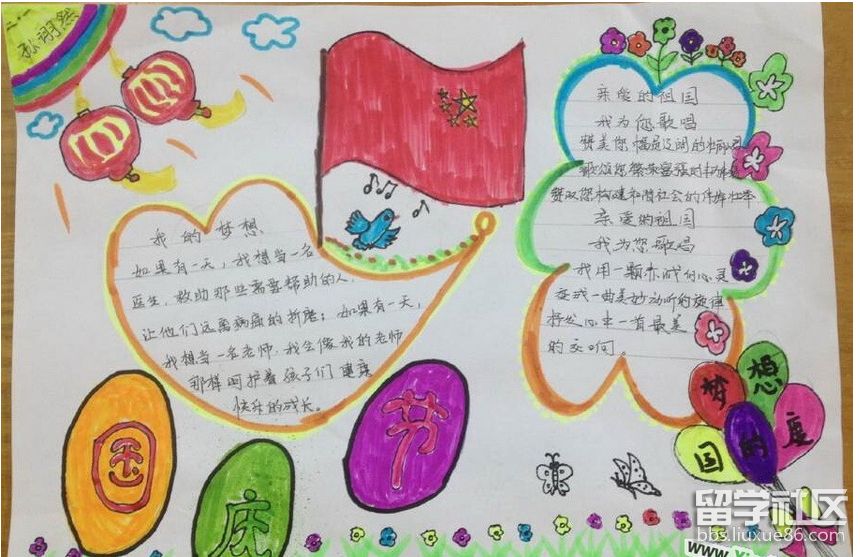 孙翊然
我的梦想
如果有一天，我想当一名
医生，救助那些需要帮助的人，
让他们远离病痛的折磨；如果有一天，
我想当一名老师，我会像我的老师
那样呵护着孩子们健康
快乐的成长。
亲爱的祖国
我为您歌唱
赞美您幅员辽阔的
歌颂您繁荣富强的
赞叹您构建和谐社会的伟岸壮举
亲爱的祖国
我为您歌唱
我用一颗赤诚的心灵
变成一曲美妙动听的旋律
抒发心中一首最美
的
国
庆
节
梦想
国的度
留学社区
bbs.liuxue86.com
www.